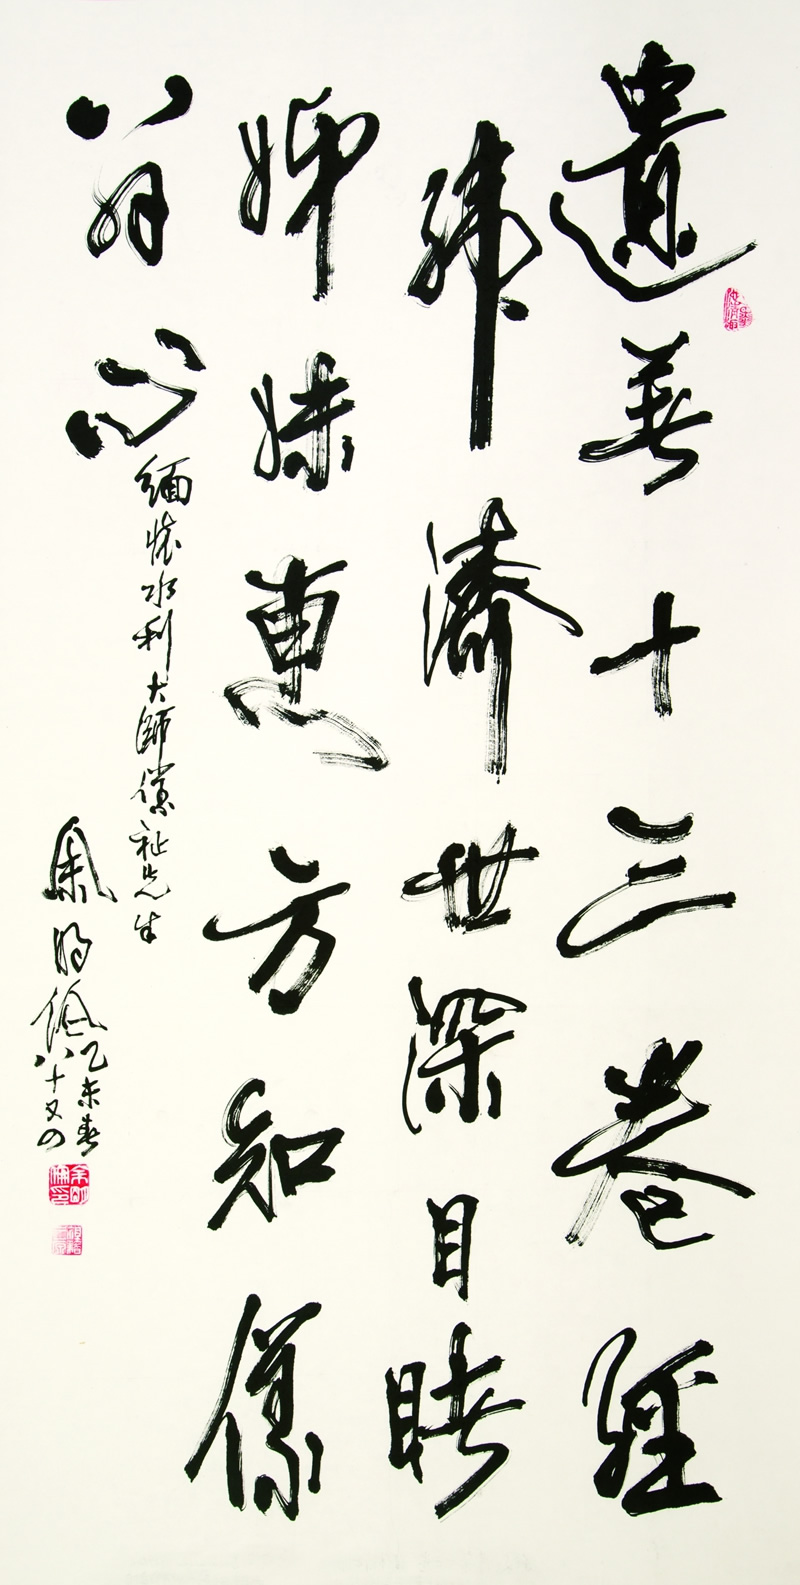 遺著十三卷經
緯濟世深目睹
姊妹惠方知儀
翁心
緬懷水利大師儀祉先生
乙未春
八十又四